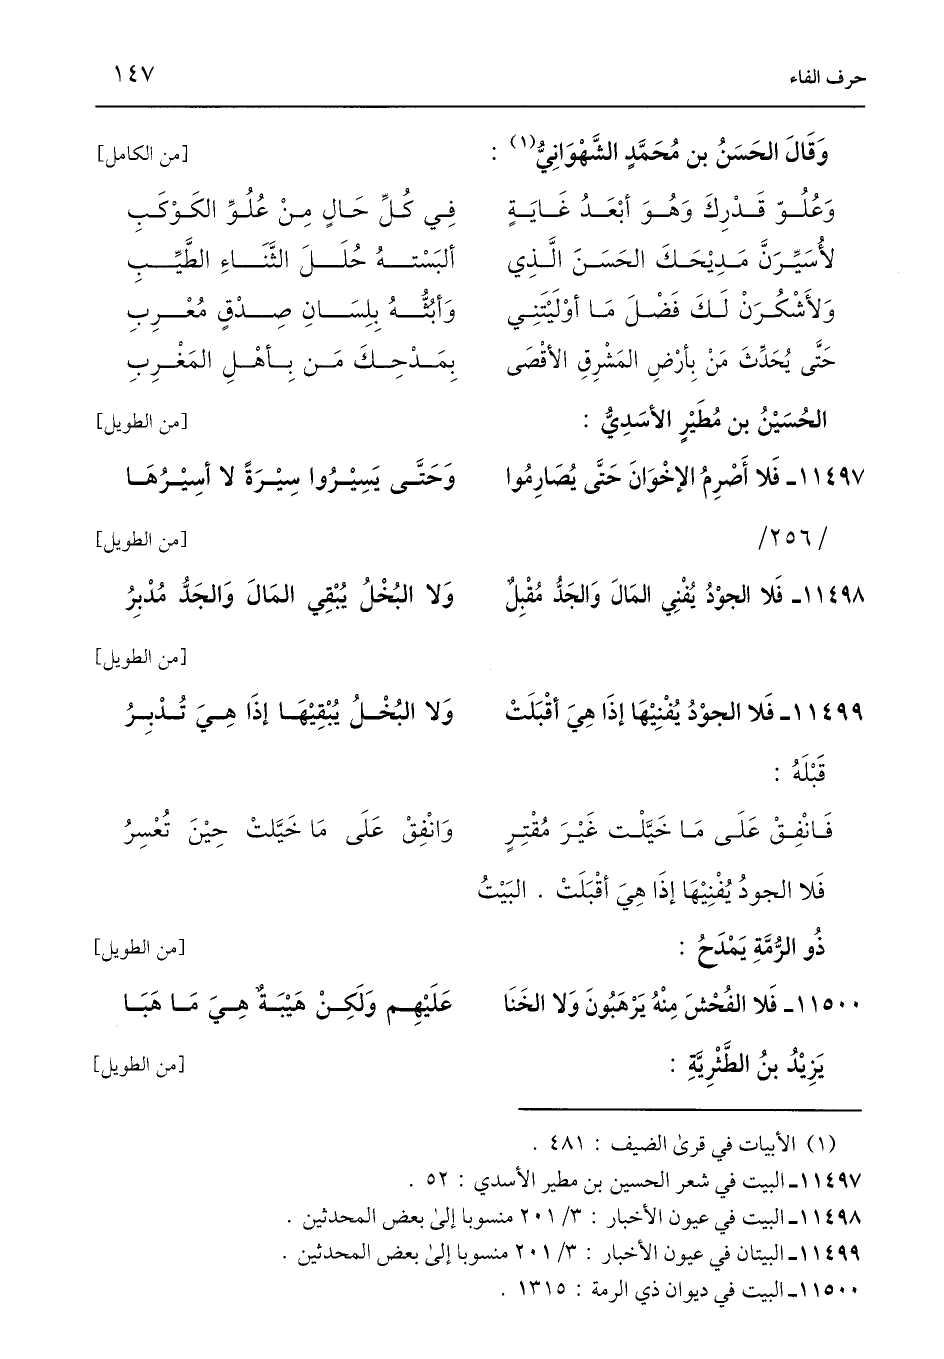 حرف الفاء ١٤٧
وَقَالَ الحَسَنُ بن مُحَمَّدٍ الشَّهْوَانِيُّ(١) : [من الكامل]
وَعُلُـوّ قَـدْرِكَ وَهُـوَ أبْعَـدُ غَـايَـةٍ فِـي كُـلِّ حَـالٍ مِـنْ عُلُـوِّ الكَـوْكَـبِ
لأُسَيِّـرَنَّ مَـدِيْحَـكَ الحَسَـنَ الَّـذِي ألبَسْتَـــهُ حُلَــلَ الثَّنَــاءِ الطَّيِّــبِ
وَلأَشْكُـرَنْ لَـكَ فَضْـلَ مَـا أوْلَيْتَنِـي وَأبُثُّـــهُ بِلِسَــانِ صِــدْقٍ مُعْــرِبِ
حَتَّى يُحَدِّثَ مَنْ بِأَرْضِ المَشْرِقِ الأَقْصَى بِمَـدْحِـكَ مَـن بِـأهْـلِ المَغْـرِبِ
الحُسَيْنُ بن مُطَيْرٍ الأسَدِيُّ : [من الطويل]
١١٤٩٧ـ فَلا أَصْرِمُ الإخْوَانَ حَتَّى يُصَارِمُوا وَحَتَّـى يَسِيْـرُوا سِيْـرَةً لا أسِيْـرُهَـا
/٢٥٦/ [من الطويل]
١١٤٩٨ـ فَلا الجوْدُ يُفْنِي المَالَ وَالجَدُّ مُقْبِلٌ وَلا البُخْلُ يُبْقِي المَالَ وَالجَدُّ مُدْبِرُ
[من الطويل]
١١٤٩٩ـ فَلا الجوْدُ يُفْنِيْهَا إذَا هِيَ أقْبَلَتْ وَلا البُخْـلُ يُبْقِيْهَـا إذَا هِـيَ تُـدْبِـرُ
قَبْلَهُ :
فَـانْفِـقْ عَلَـى مَـا خَيَّلْـت غَيْـرَ مُقْتِـرٍ وَانْفِقْ عَلَى مَا خَيَّلتْ حِيْنَ تُعْسِرُ
فَلا الجودُ يُفْنِيْهَا إذَا هِيَ أقْبَلَتْ . البَيْتُ
ذُو الرُّمَّةِ يَمْدَحُ : [من الطويل]
١١٥٠٠ـ فَلا الفُحْشَ مِنْهُ يَرْهَبُونَ وَلا الخَنَا عَلَيْهِـم وَلَكِـنْ هَيْبَـةٌ هِـيَ مَـا هَبَـا
يَزِيْدُ بنُ الطَّثْرِيَّةِ : [من الطويل]
(١) الأبيات في قرىٰ الضيف : ٤٨١ .
١١٤٩٧ـ البيت في شعر الحسين بن مطير الأسدي : ٥٢ .
١١٤٩٨ـ البيت في عيون الأخبار : ٣/ ٢٠١ منسوبا إلىٰ بعض المحدثين .
١١٤٩٩ـ البيتان في عيون الأخبار : ٣/ ٢٠١ منسوبا إلىٰ بعض المحدثين .
١١٥٠٠ـ البيت في ديوان ذي الرمة : ١٣١٥ .